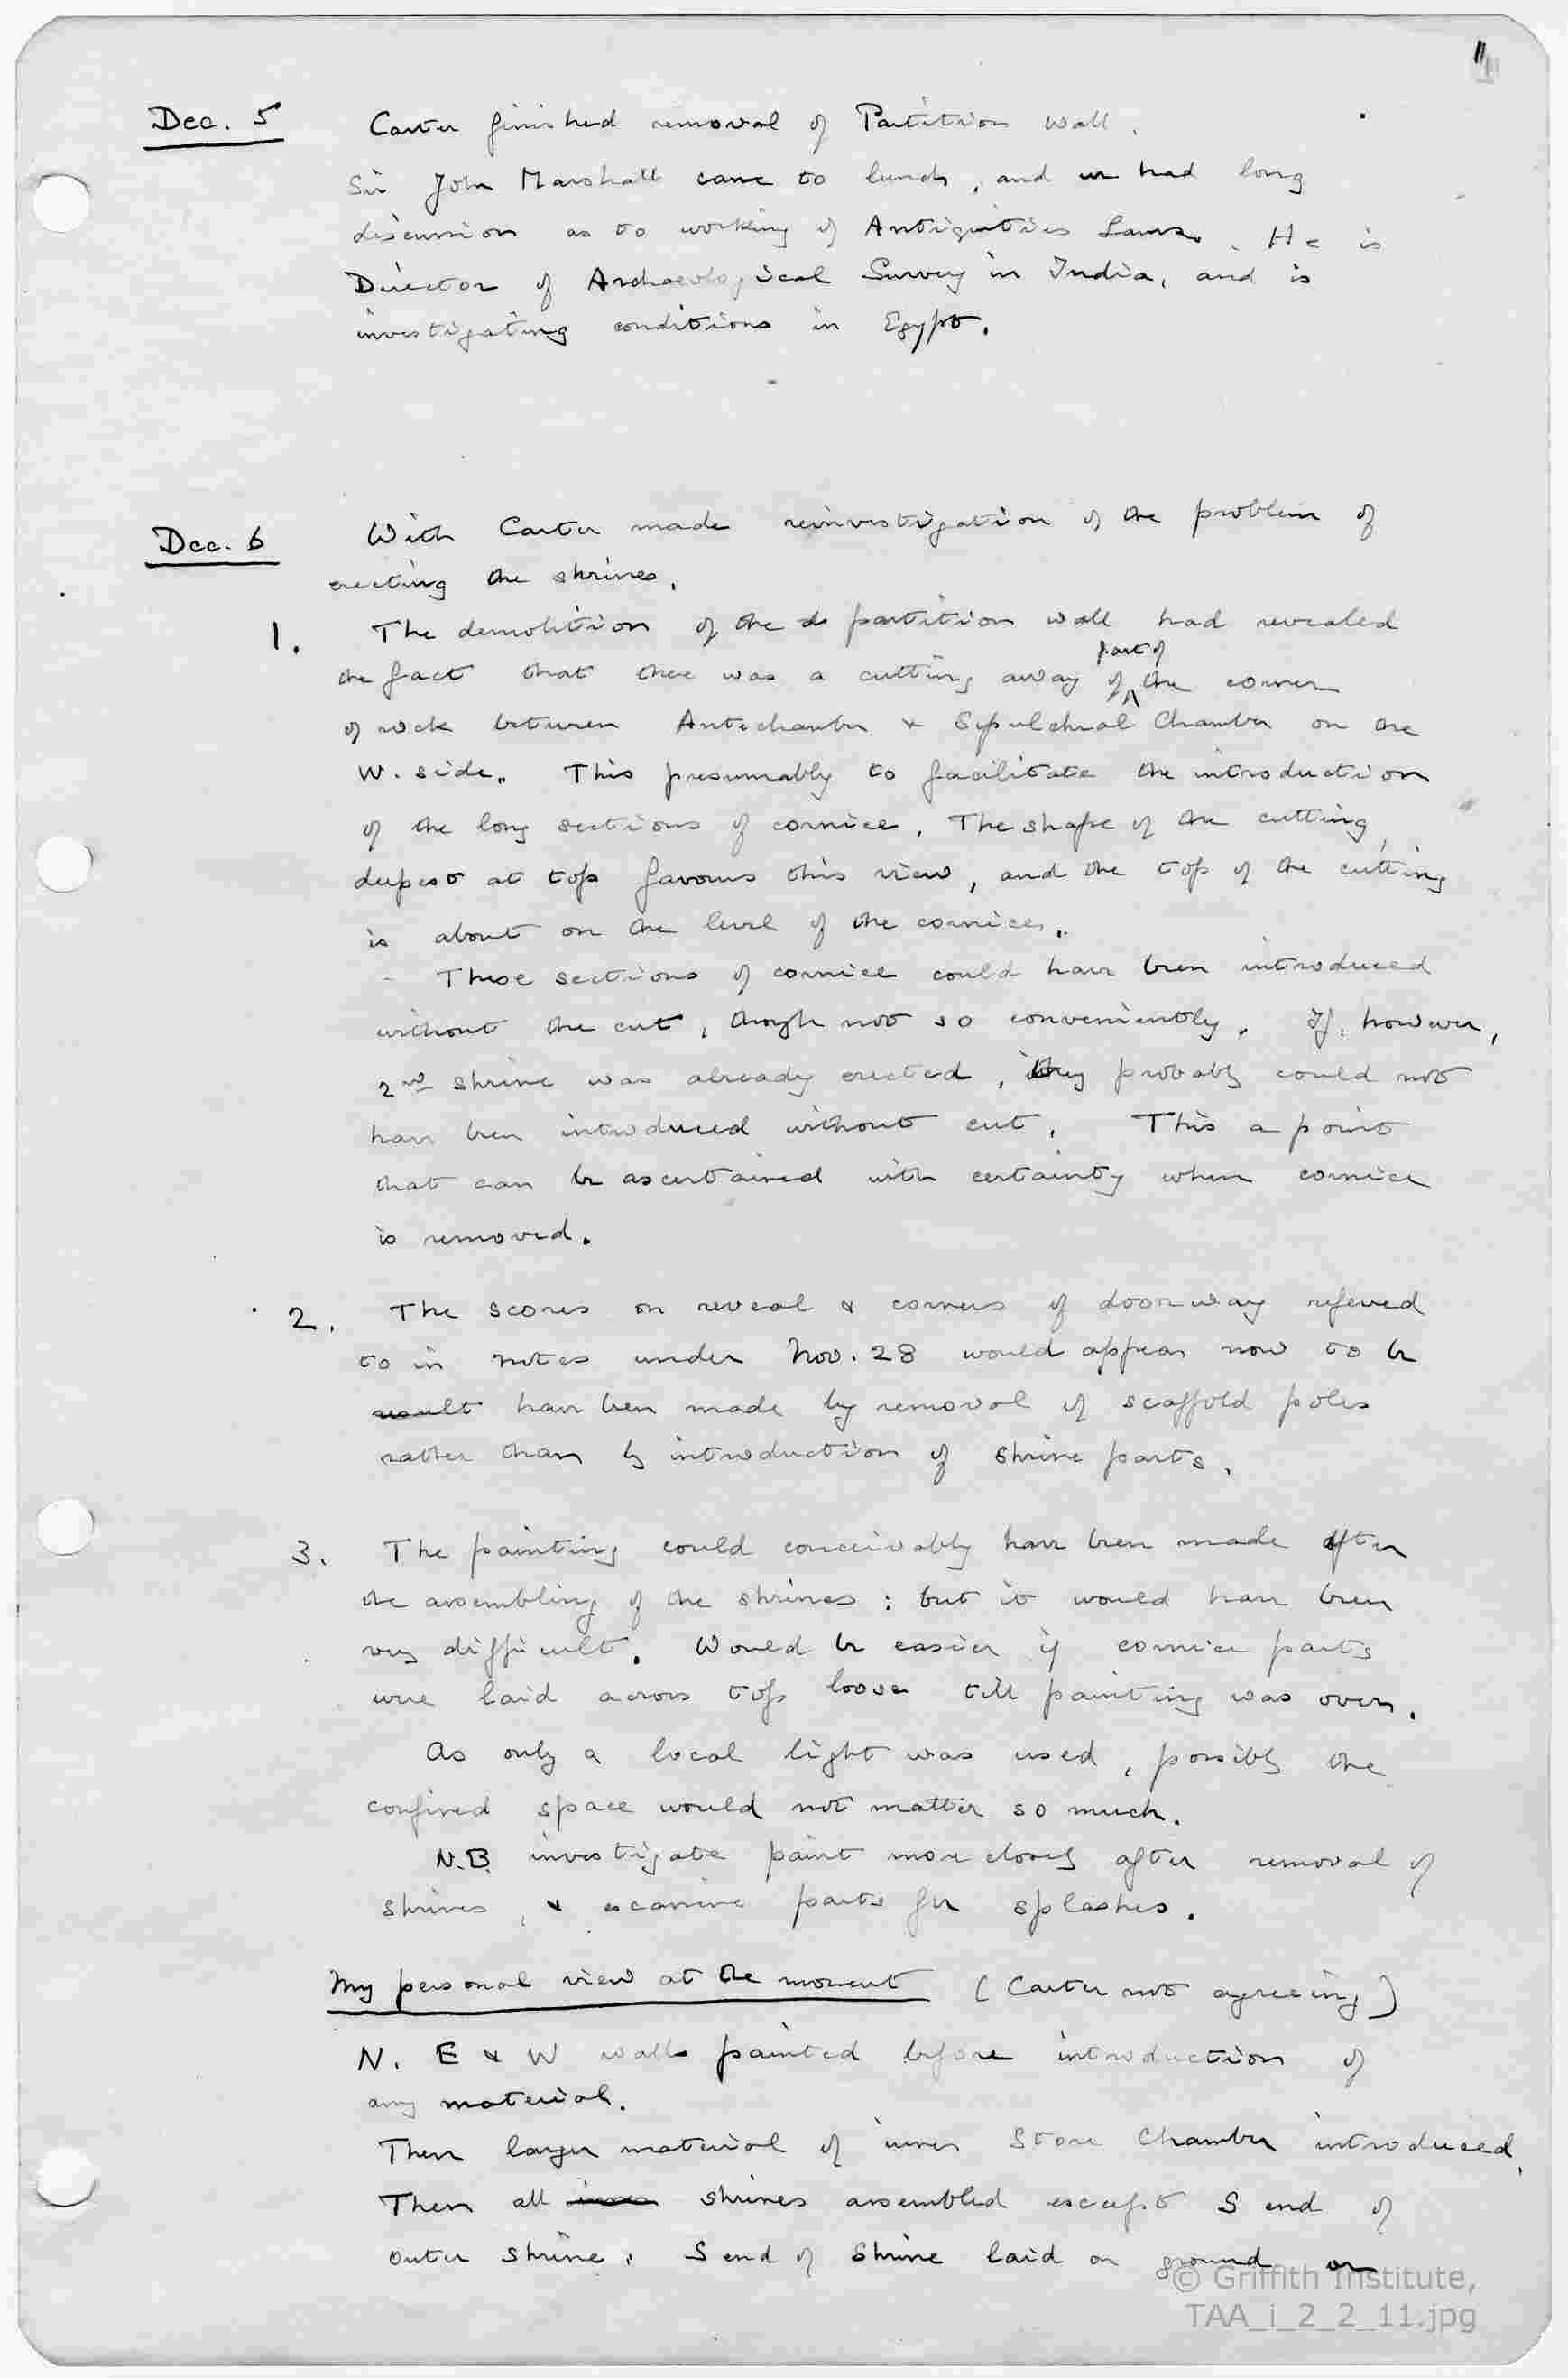 11
Dec. 5 Carter finished removal of Partition Wall.
Sir John Marshall came to lunch, and we had long
discussion as to working of Antiquities Laws. He is
Director of Archaeological Survey in India, and is
investigating conditions in Egypt.
Dec. 6 With Carter made reinvestigation of the problem of
erecting the shrines.
1. The demolition of the partition wall had revealed
the fact that there was a cutting away of part of the corner
of rock between Antechamber & Sepulchral Chamber on the
W. side. This presumably to facilitate the introduction
of the long sections of cornice. The shape of the cutting,
deepest at top favours this view, and the top of the cutting
is about on the level of the cornices.
These sections of cornice could have been introduced
without the cut, though not so conveniently. If, however,
2nd shrine was already erected, they probably could not
have been introduced without cut. This a point
that can be ascertained with certainty when cornice
is removed.
2. The scores on reveal & corners of doorway referred
to in notes under Nov. 28 would appear now to be
result have been made by removal of scaffold poles
rather than by introduction of shrine parts.
3. The painting could conceivably have been made after
the assembling of the shrines: but it would have been
very difficult. Would be easier if cornice parts
were laid across top loose till painting was over.
As only a local light was used, possibly the
confined space would not matter so much.
N.B. investigate paint more closely after removal of
shrines, & examine parts for splashes.
My personal view at the moment (Carter not agreeing)
N. E & W walls painted before introduction of
any material.
Then larger material of inner Store Chamber introduced.
Then all inner shrines assembled except S end of
outer shrine. S end of Shrine laid on ground on
© Griffith Institute,
TAA_i_2_2_11.jpg